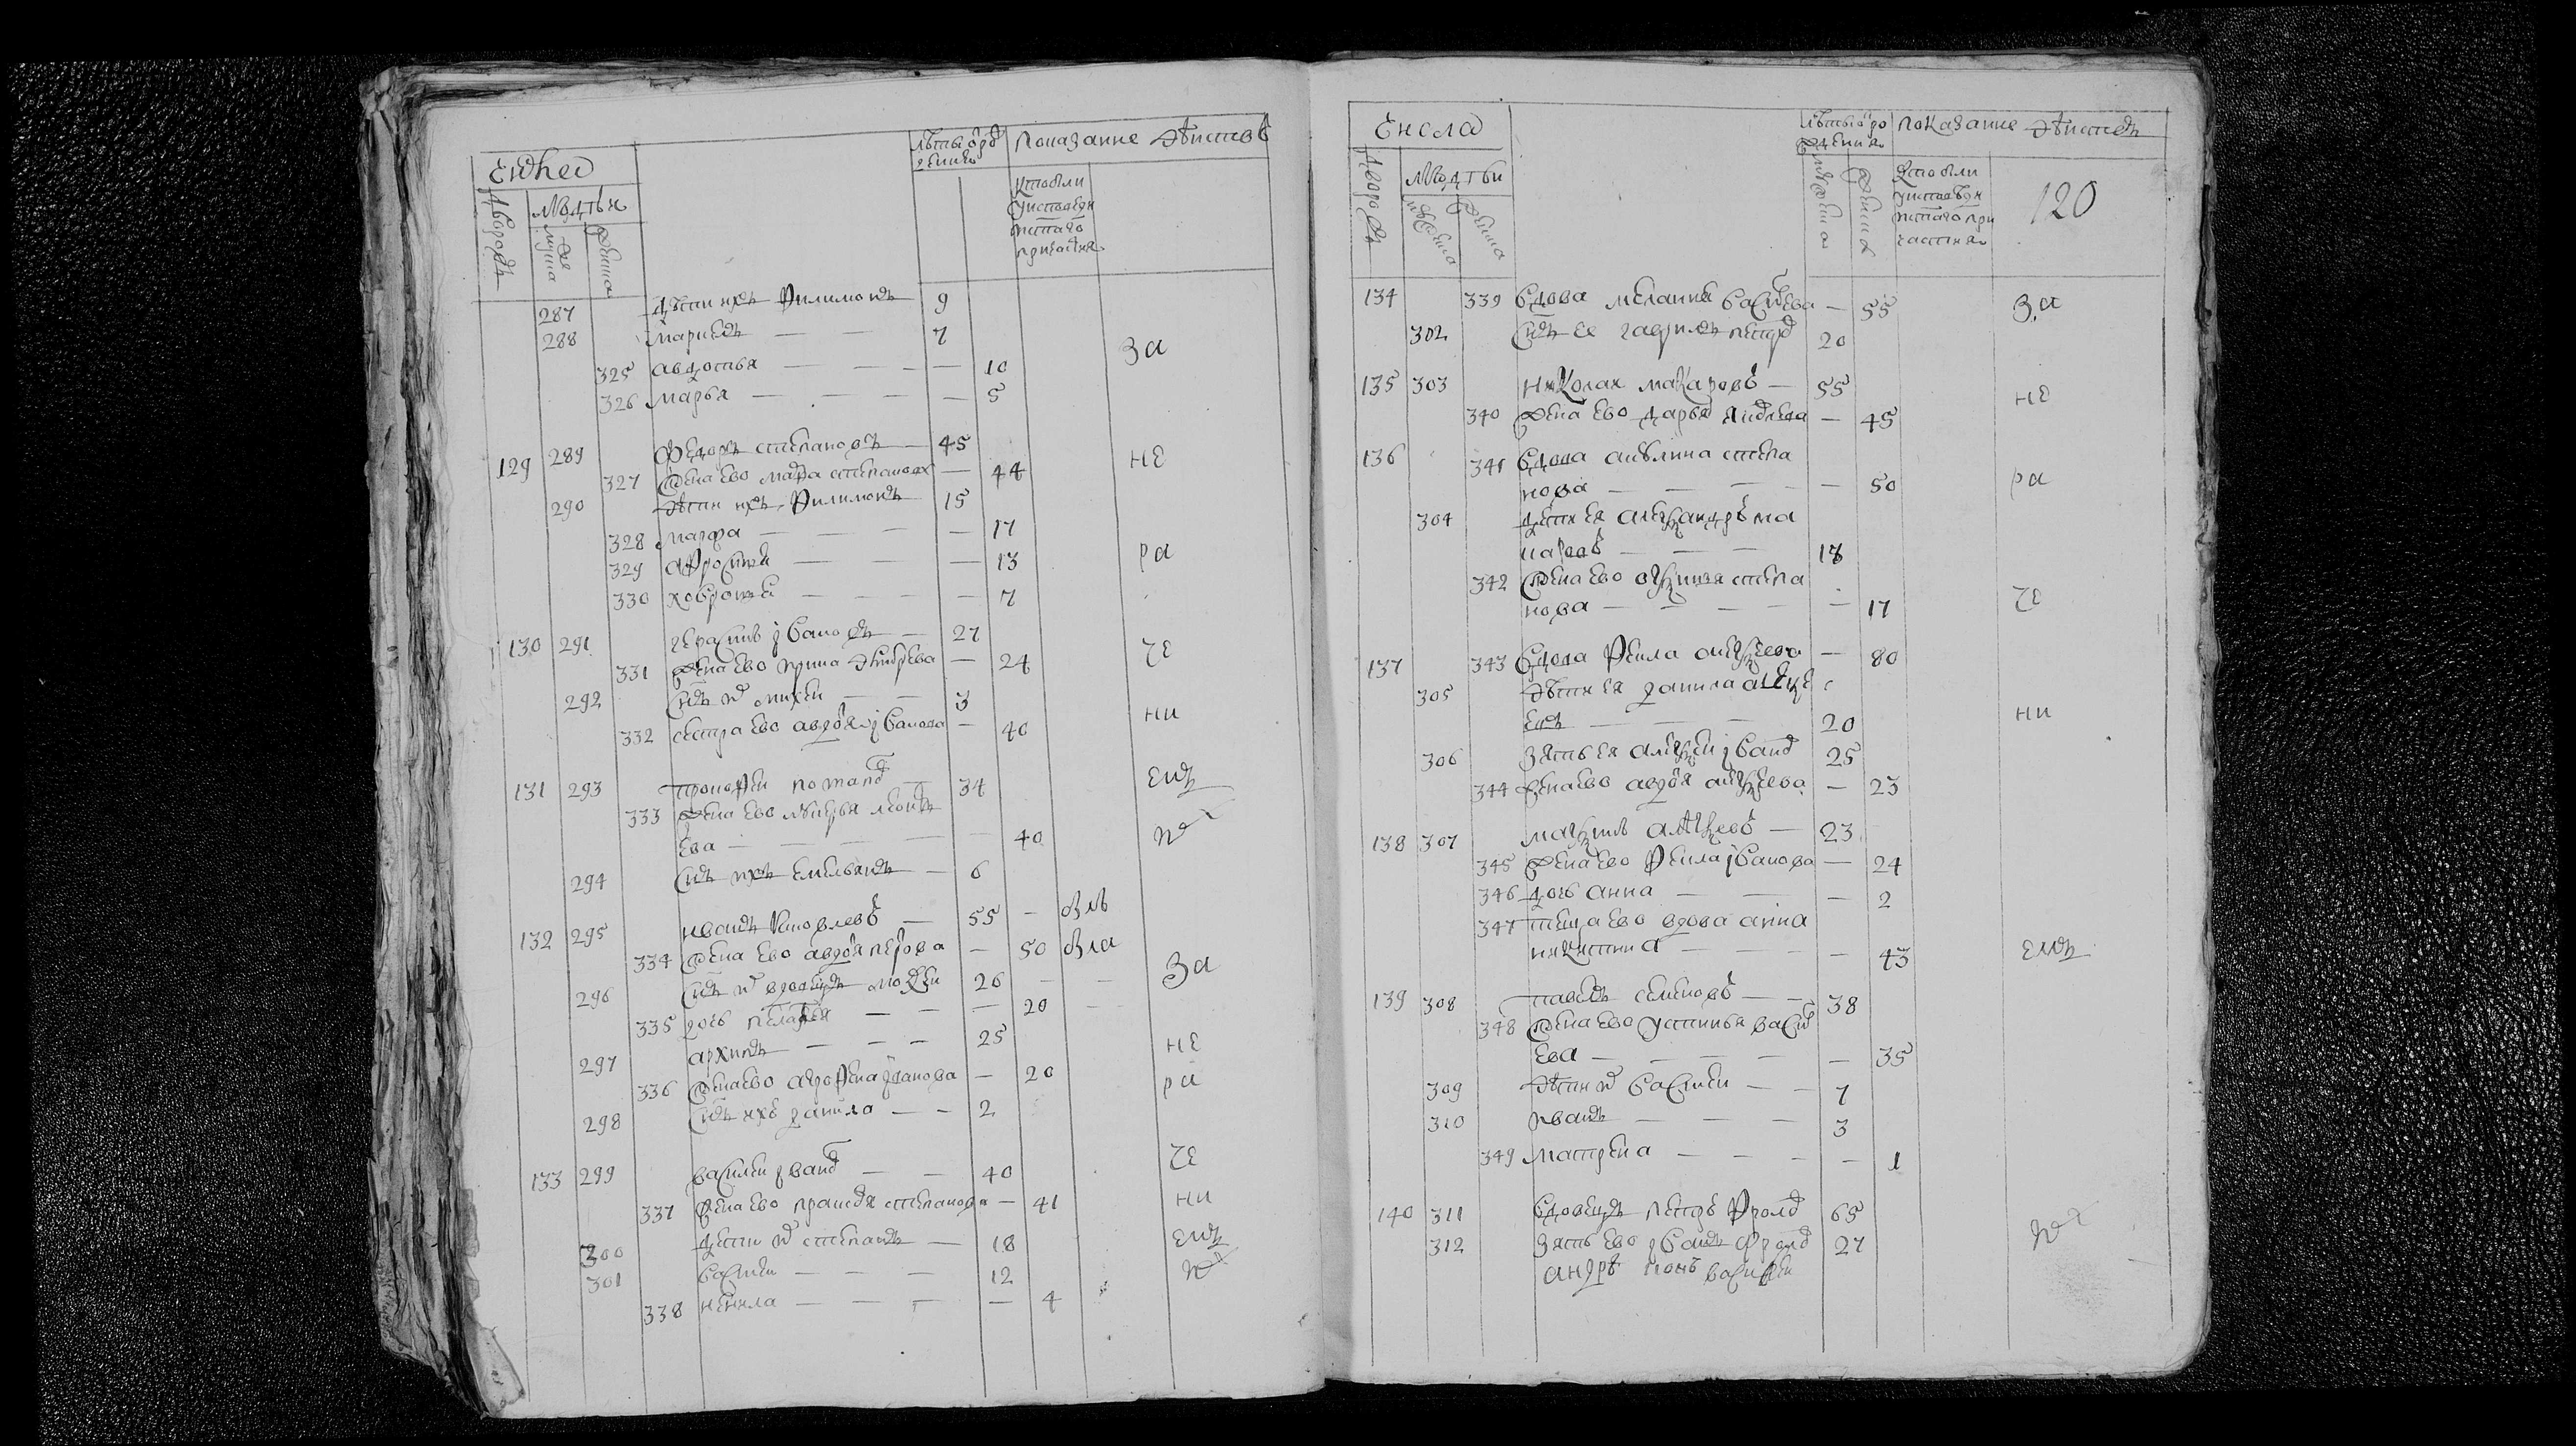 Число
Дворовъ
людьи
мужеска
женска
Лѣты отро
ждения
Показание дѣиствъ
Кто были
у исповеди
и святаго
причастия
287 дѣти ихъ Филимонъ 9
288 Маркелъ — — 7
325 авдотья — — — 10
за
326 Марья — — — 5
129 289 Федоръ степановъ — 45
327 жена ево мафра степанова — 44
не
290 дѣти ихъ Филимонъ 15
328 Марфа — — — 17
329 афросинья — — — 13
ра
330 ховронья — — — 7
130 291 герасимъ ивановъ — 27
331 жена ево ирина андреева — 24
че
292 сынъ их михеи — — 3
332 сестра ево авдотья иванова — 40
ни
131 293 прокофеи потапов — 34
емъ
333 жена ево лукерья леонтъ
ева — — — — 40
294 сынъ ихъ емельянъ — 6
132 295 иванъ яковлевъ — 55 — былъ
334 жена ево авдотья петрова — 50 была
296 сынъ их вдовецъ мокеи 26 — —
за
335 дочь пелагея — — — 20 —
297 архипъ — — — 25
не
336 жена ево агрофена иванова — 20
ра
298 сынъ ихъ данила — — 2
133 299 василеи иванов — — 40
че
337 жена ево прасковя степанова — 41
ни
300 дети их степанъ — 18
емъ
301 василеи — — — 12
338 ненила — — — — 4
Числа
Дворовъ
людьи
мужеска
женска
лѣты отро
ждения
мужеска
женска
показание дѣиствъ
Кто были
у исповеди
и святаго при
частия
120
134 339 вдова мелания васильева — 55
за
302 сынъ ее гаврилъ петров 20
135 303 николаи макаровъ — 55
не
340 жена ево дарья яковлева — 45
136 341 вдова акулина степа
нова — — — — 50
ра
304 дети ея александръ ма
каровъ — — — 18
342 жена ево степа
нова — — — — — 17
че
137 343 вдова фекла алексеева — 80
305 дѣти ея данила алексе
евъ — — — 20
ни
306 зять ея алексеи иванов 25
344 жена ево авдотья алексеева — 23
138 307 максимъ алексеевъ — 23
345 жена ево фекла иванова — 24
346 дочь анна — — — 2
347 теща ево вдова анна
никитина — — — 43
емъ
139 308 павелъ семеновъ — — 38
348 жена ево устинья василь
ева — — — — — 35
309 дѣти их василеи — — 7
310 иванъ — — — 3
349 матрена — — — — 1
140 311 вдовецъ петръ фролов 65
312 зять ево иванъ фролов 27
андрѣ попъ василеи